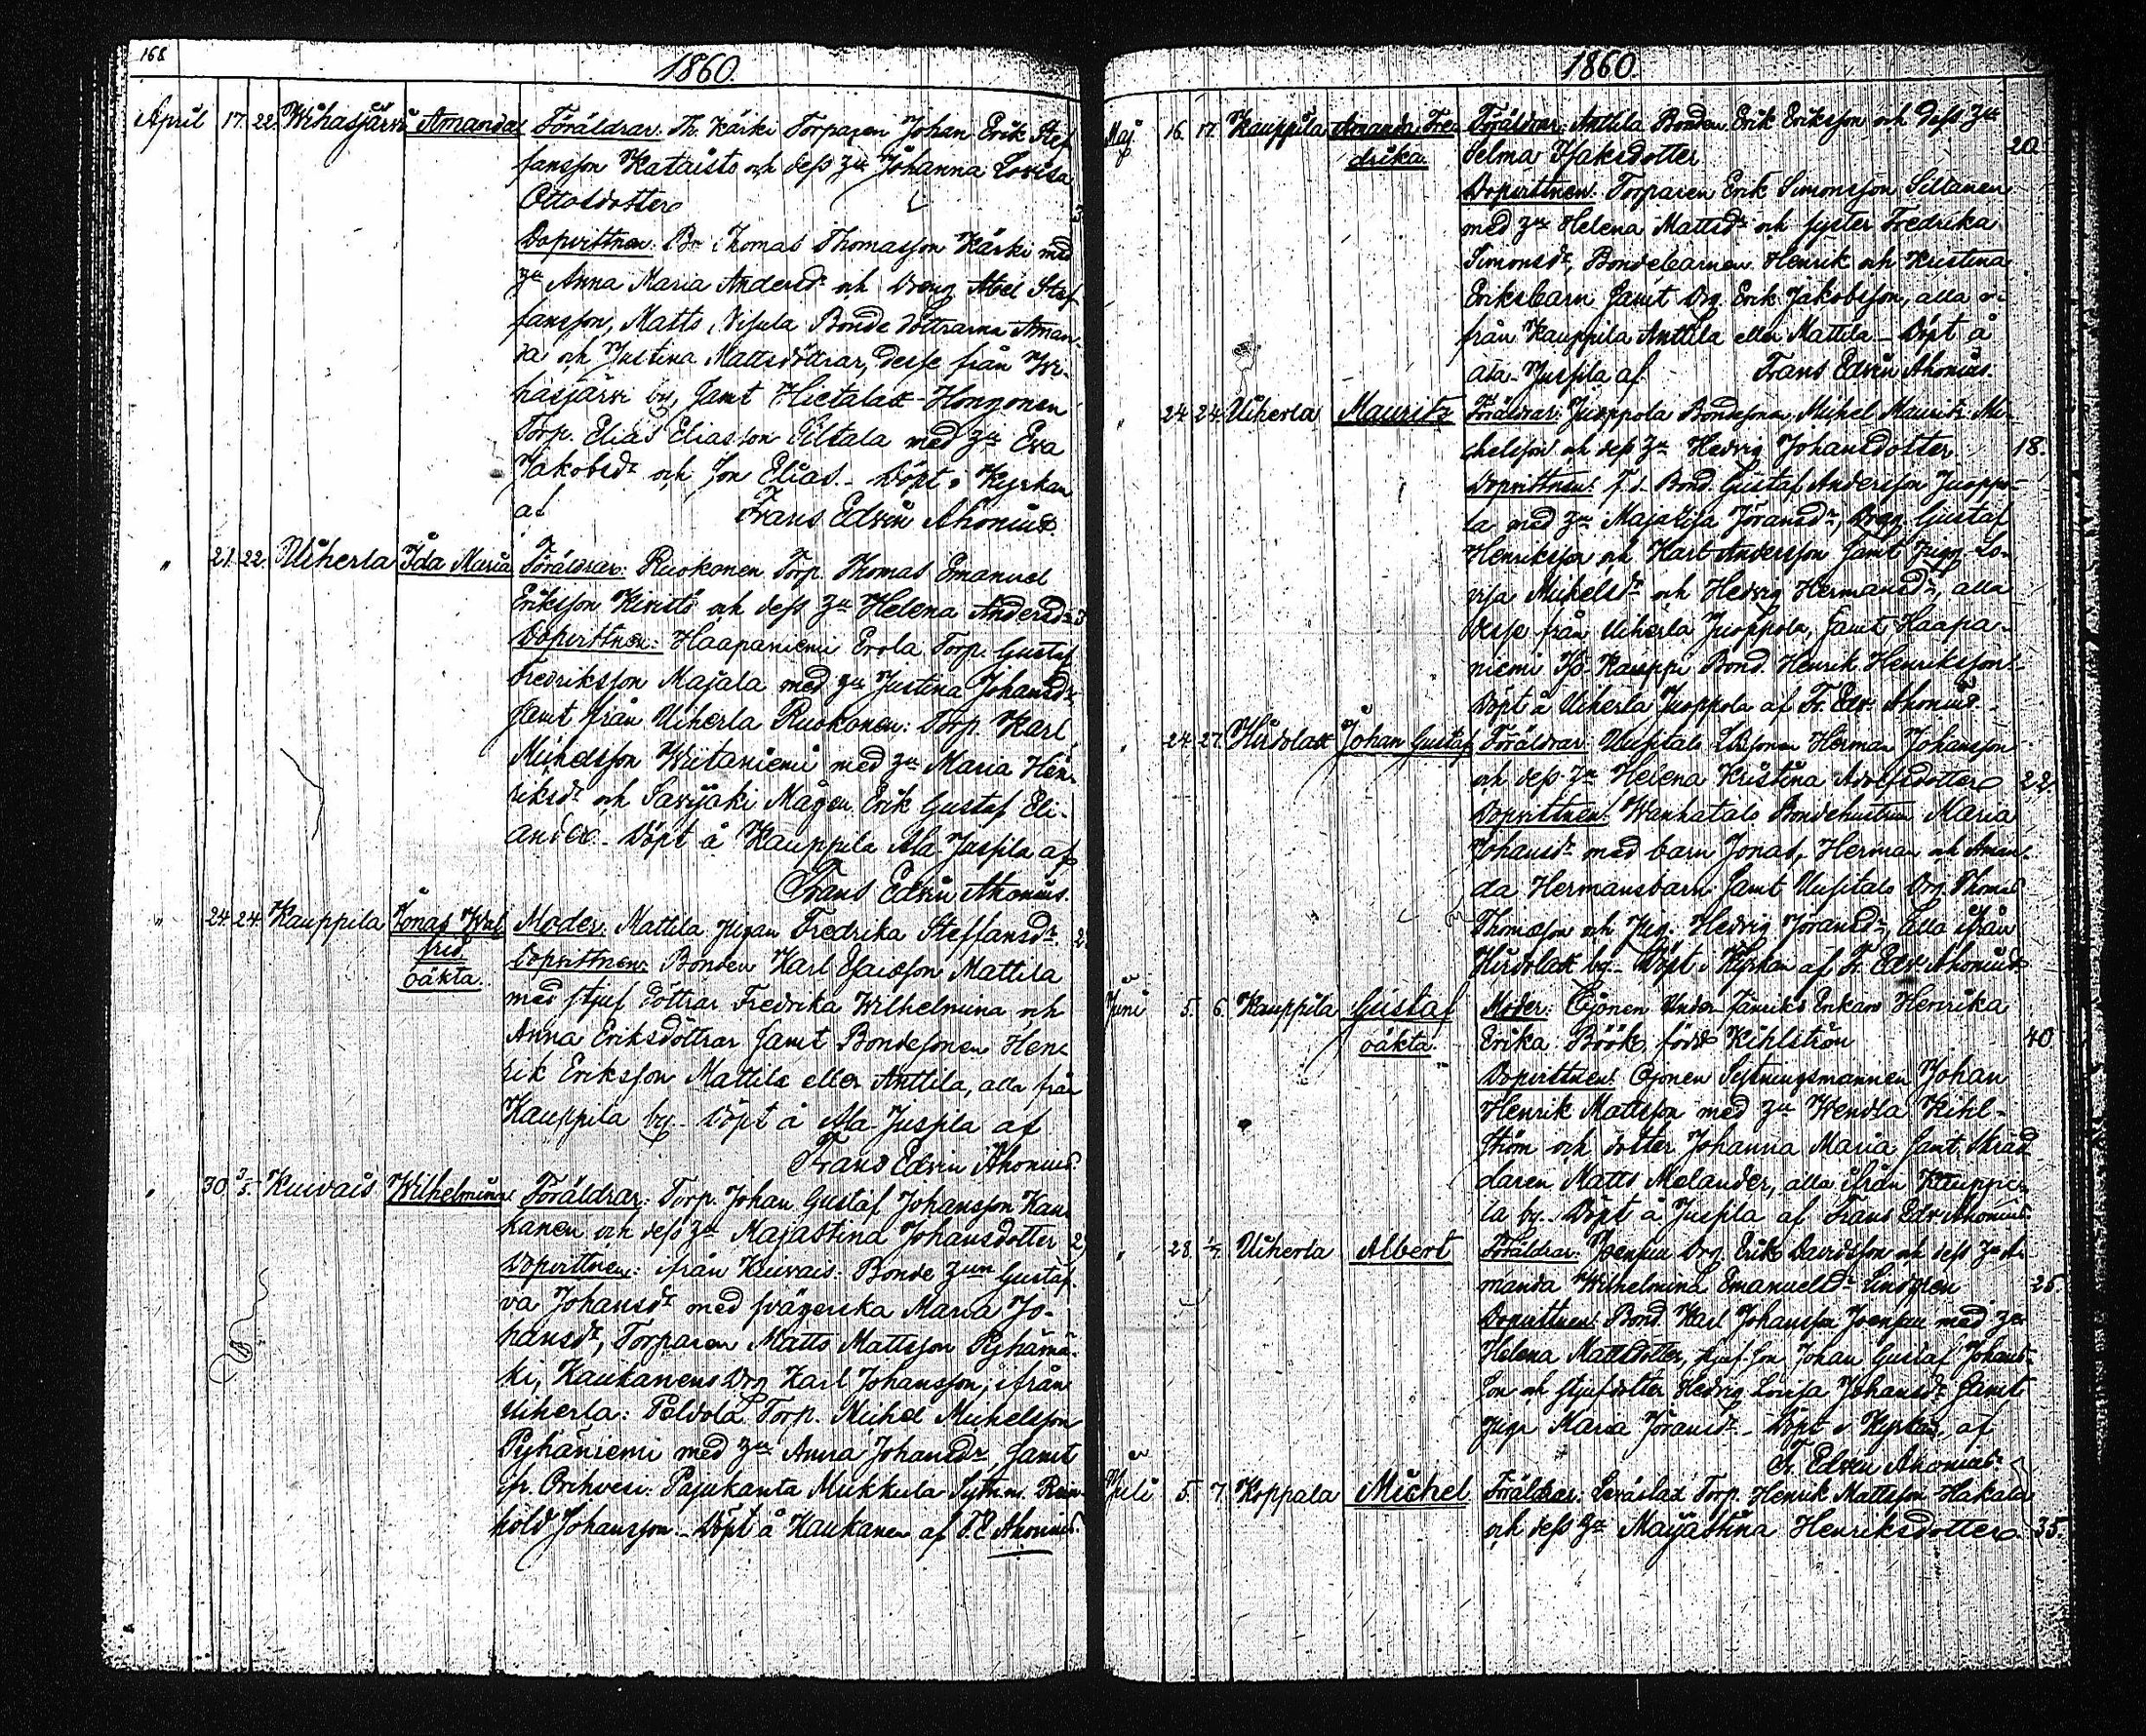 168
1860.
April 17. 22. Wihasjärvi Amanda Föräldrar: Th. Kärki Torparen Johan Erik Stef
fansson Kataisto och dess hu Johanna Lovisa
Ottosdotter
Dopvittnen: Bn Thomas Thomasson Kärki med
hu Anna Maria Andersdr och Dreng Abel Stef
fansson, Matts Bonde döttrarna Aman-
da och Justina Mattsdöttrar, desse från Wi-
hasjärvi by, samt Hietalax Hongonen
Torp. Elias Eliasson Siltala med hu Eva
Jakobsdr och Son Elias. Döpt i Kyrkan
af Frans Edvin Ahonius.
" 21. 22. Uiherla Ida Maria Föräldrar: Ruokonen Torp. Thomas Emanuel
Eriksson Kivistö och dess hu Helena Andersdr
Dopvittnen: Haapaniemi Erola Torp. Gustaf
Fredriksson Majala med hu Justina Johansdr
samt från Uiherla Ruokonen: Torp. Karl
Michelsson Wiitaniemi med hu Maria Hen-
riksdr och Savijoki Mågen Erik Gustaf Eli-
ander. Döpt å Kauppila Ala Jussila af
Frans Edvin Ahonius.
" 24. 24. Kauppila Jonas Wal Moder: Mattila Pigan Fredrika Steffansdr
frid Dopvittnen: Bonden Karl Esaiasson Mattila
oäkta. med styf döttrar Fredrika Wilhelmina och
Anna Eriksdöttrar samt Bondesonen Hen-
rik Eriksson Mattila eller Anttila, alla från
Kauppila by. Döpt å Ala-Jussila af
Frans Edvin Ahonius.
" 30. 2/5. Kuivais Wilhelmina Föräldrar: Torp. Johan Gustaf Johansson Kau
kanen och dess hu Majastina Johansdotter
Dopvittnen: ifrån Kuivais: Bonde hun Gustaf-
va Johansdr med svägerska Maria Jo-
hansdr, Torparen Matts Mattsson Pyhämä-
ki, Kaukanens Drg Karl Johansson; ifrån
Uiherla: Peldola Torp. Michel Michelsson
Pyhäniemi med hu Anna Johansdr, samt
fr. Orihvesi Pajukanta Mukkula Sytnm. Rein-
hold Johansson. Döpt å Kaukanen af F. E. Ahonius.
1860.
Maj 16. 17. Kauppila Amanda Fre- Föräldrar: Anttila Bonden Erik Eriksson och dess hu
drika. Selma Isaksdotter 20.
Dopvittnen: Torparen Erik Simonsson Siltanen
med hu Helena Mattsdr och syster Fredrika
Simonsdr, Bondebarnen Henrik och Kristina
Eriksbarn samt Drg. Erik Jakobsson, alla i-
från Kauppila Anttila eller Mattila. Döpt å
Ala-Jussila af Frans Edvin Ahonius.
" 24. 24. Uiherla Mauritz Föräldrar: Juoppola Bondesonen Michel Mauritz Mi-
chelsson och dess hu Hedvig Johansdotter 18.
Dopvittnen: F. d. Bond. Gustaf Andersson Juoppo-
la med hu Majalisa Göransdr, Drgg. Gustaf
Henriksson och Karl Andersson samt Pigg. Lo-
visa Michelsdr och Hedvig Hermansdr, alla
desse från Uiherla Juoppola, samt Haapa-
niemi Kauppi Bond. Henrik Henriksson.
Döpt å Uiherla Juoppola af Fr. Edv. Ahonius.
" 24. 27. Hirvolax Johan Gustaf Föräldrar: Uusitalo Herman Johansson
och dess hu Helena Kristina Adolfsdotter 22
Dopvittnen: Wanhatalo Bondehustrun Maria
Johansdr med barn Jonas, Herman och Aman-
da Hermansbarn samt Uusitalo Drg. Thomas
Thomasson och Pig. Hedvig Göransdr, alla ifrån
Hirvolax by. Döpt i Kyrkan af Fr. Edv. Ahonius
Juni 5. 6. Kauppila Gustaf Moder: Ojonen Under Jänriks Enkan Henrika
oäkta. Erika Böök född Kihlström 40
Dopvittnen: Ojonen Sytningsmannen Johan
Henrik Mattsson med hu Wendla Kihl-
ström och dotter Johanna Maria samt Skräd
daren Matts Melander, alla ifrån Kauppi-
la by. Döpt å Jussila af Frans Edv. Ahonius.
" 28. 1/7. Uiherla Albert Föräldrar: Joensuu Drg. Erik Davidsson och dess hu A-
manda Wilhelmina Emanuelsdr Lindgren 25.
Dopvittnen: Bond. Karl Johansson Joensuu med hu
Helena Mattsdotter, styf-son Johan Gustaf Johans-
son och styfdotter Hedvig Lovisa Johansdr samt
Piga Maria Göransdr. Döpt i Kyrkan af
Fr. Edvin Ahonius.
Juli 5. 7. Koppala Michel Föräldrar: Torp. Henrik Mattsson Hakala
och dess hu Majastina Henriksdotter 35.